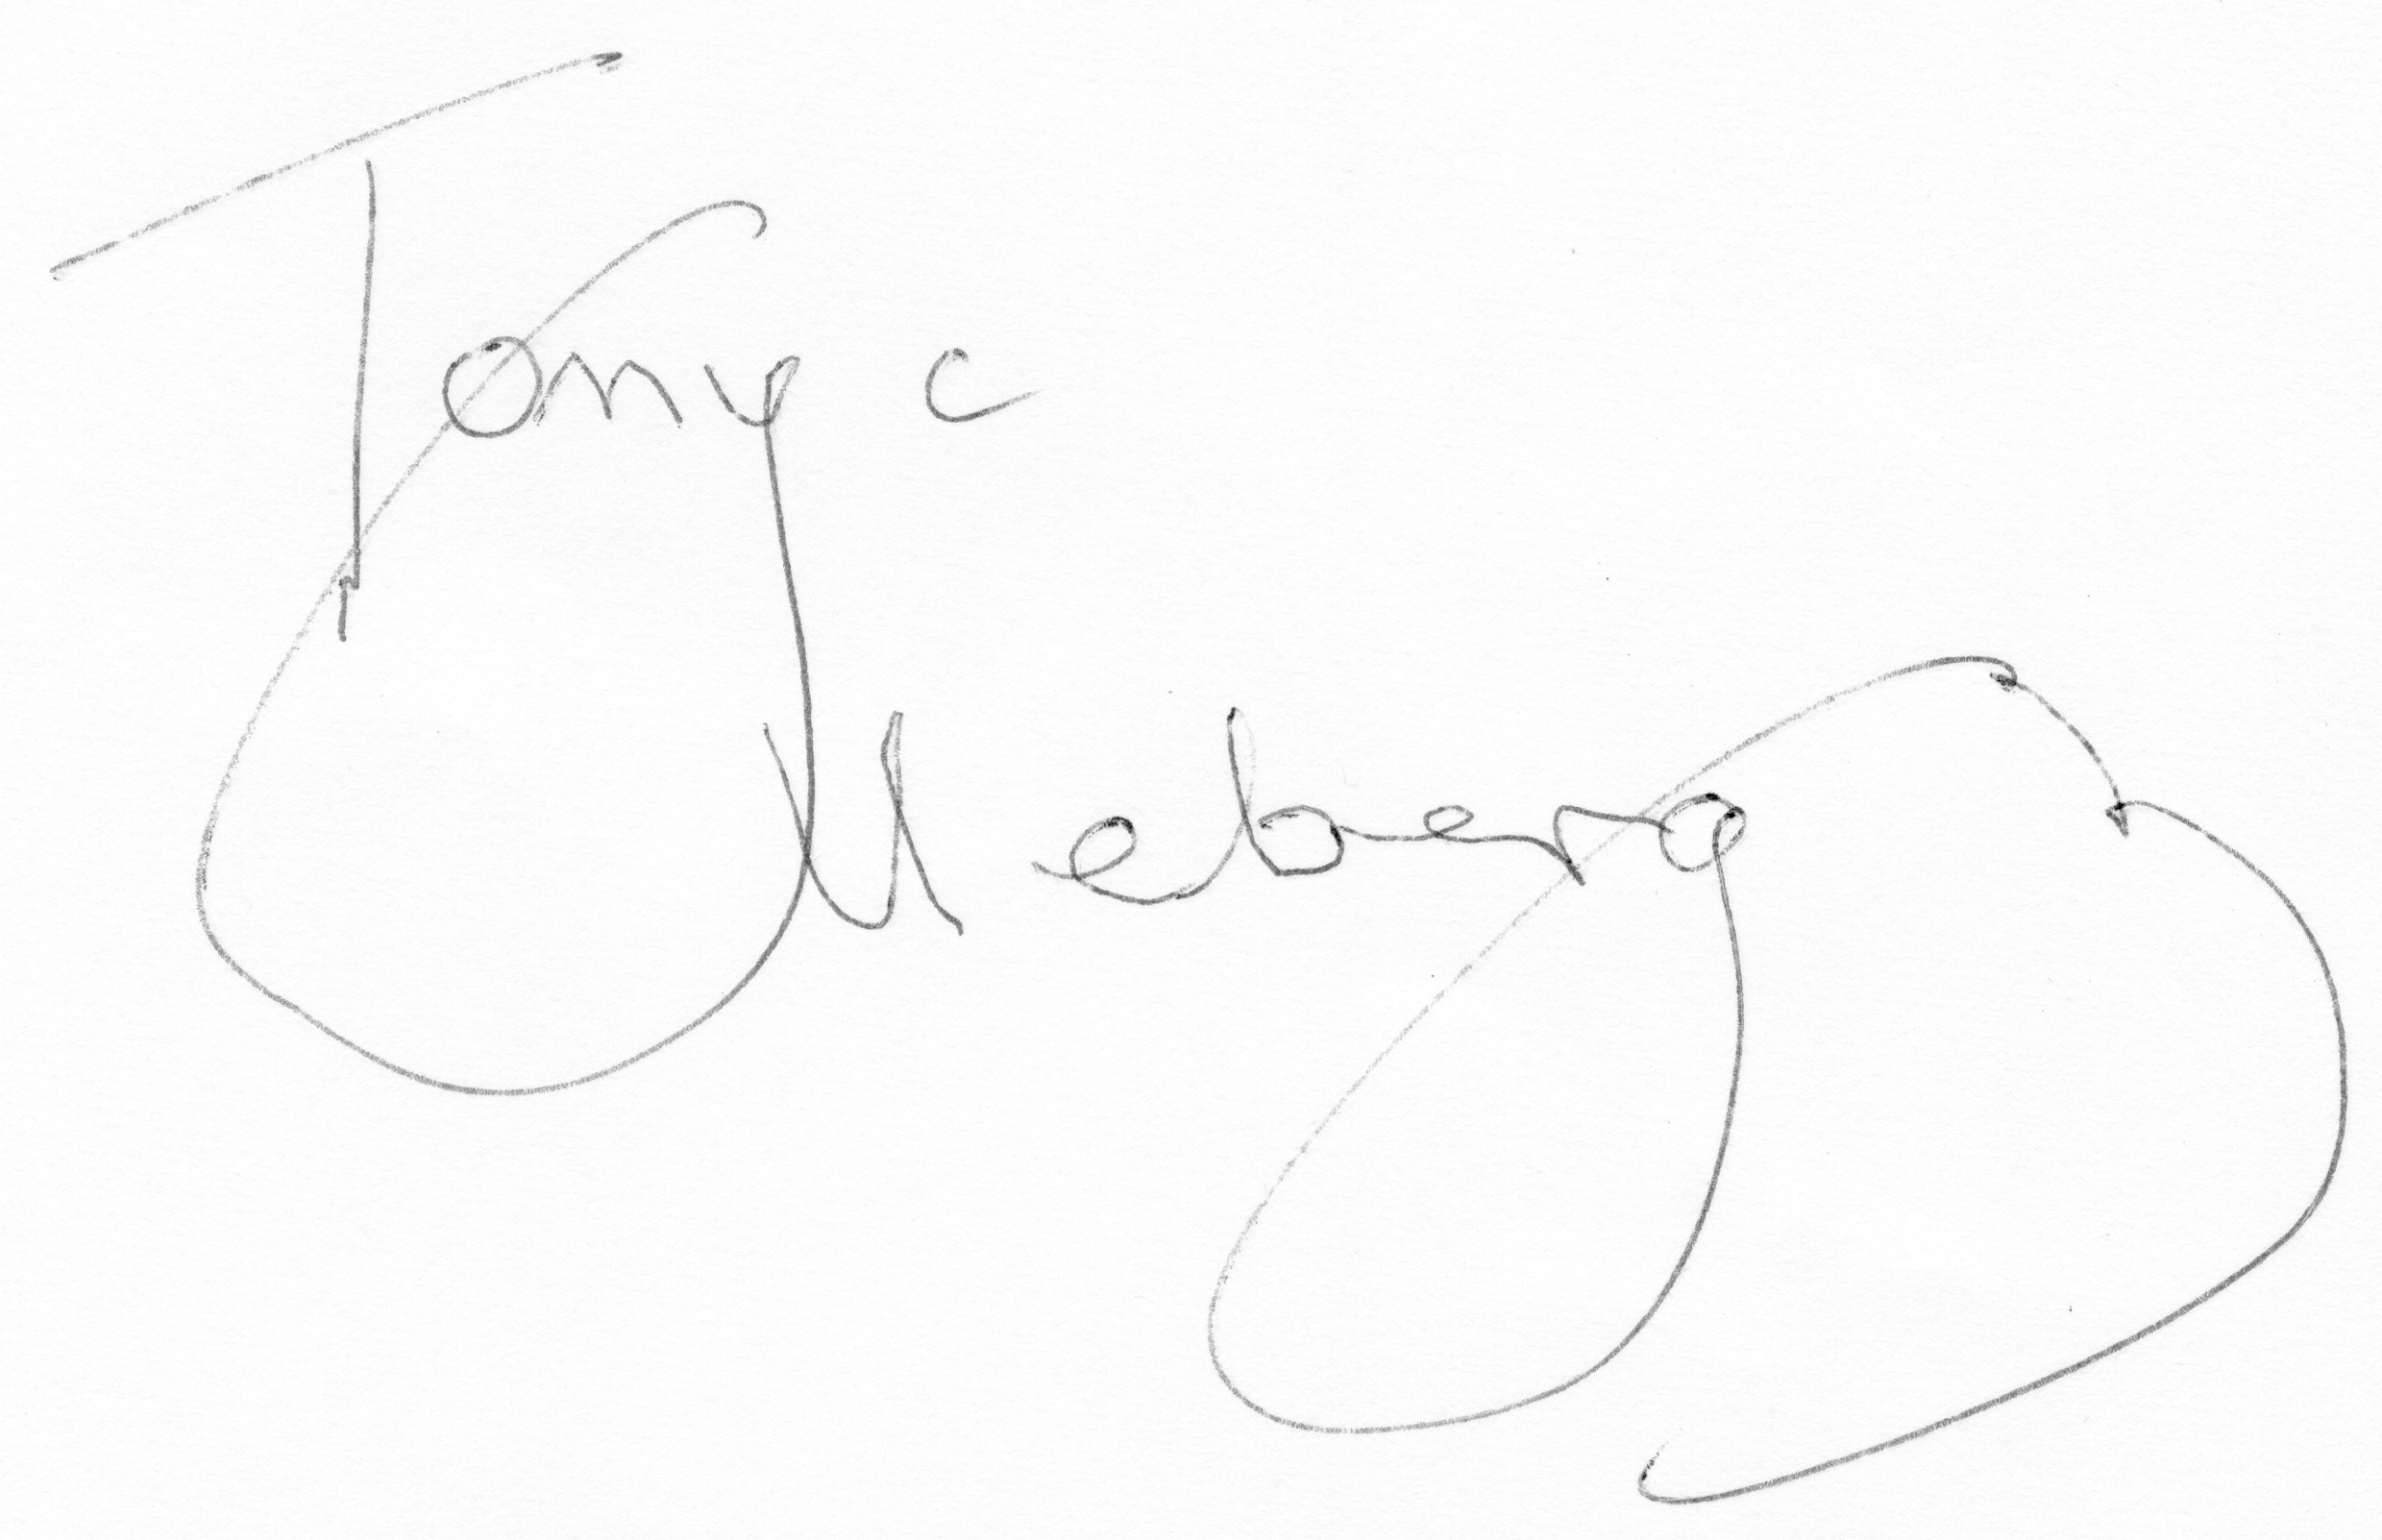 Tony C
Ueberg